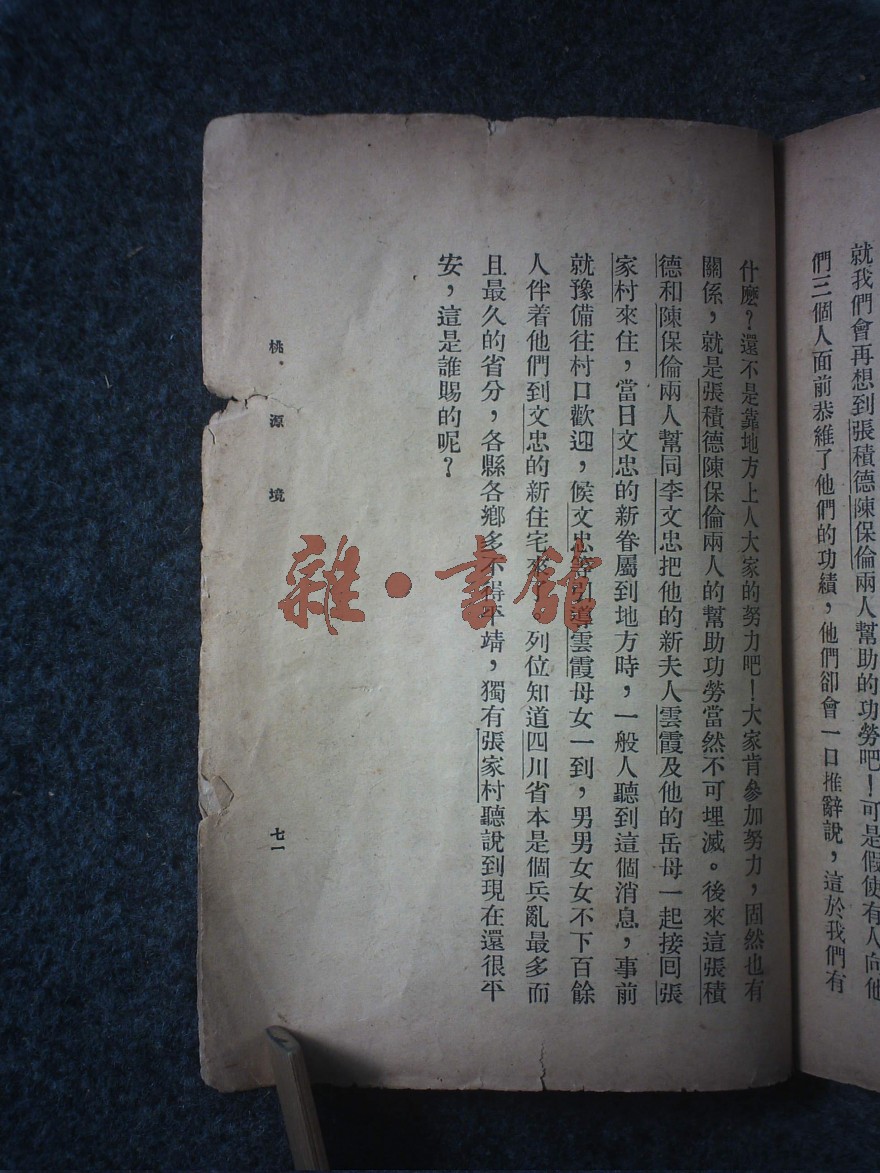 就我們會再想到張積德陳保倫兩人幫助的功勞吧！可是假使有人向他
們三個人面前恭維了他們的功績，他們卻會一口推辭說，這於我們有
什麼？還不是靠地方上人大家的努力吧！大家肯參加努力，固然也有
關係，就是張積德陳保倫兩人的幫助功勞當然不可埋滅。後來這張積
德和陳保倫兩人幫同李文忠把他的新夫人雲霞及他的岳母一起接囘張
家村來住，當日文忠的新眷屬到地方時，一般人聽到這個消息，事前
就豫備往村口歡迎，候文忠等引導雲霞母女一到，男男女女不下百餘
人伴着他們到文忠的新住宅來了。列位知道四川省本是個兵亂最多而
且最久的省分，各縣各鄉多不得平靖，獨有張家村聽說到現在還很平
安，這是誰賜的呢？
桃源境
七一
雜·書舘